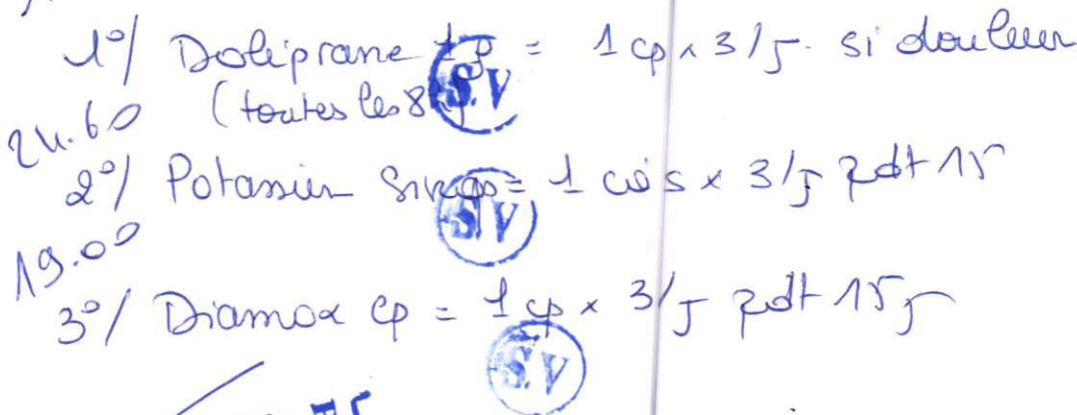 1°/ Doliprane 1g = 1 cp x 3/j. si douleur
(toutes les 8h)
24.60
2°/ Potassium Sirop = 1 càs x 3/j pdt 15
19.00
3°/ Diamox cp = 1 cp x 3/j pdt 15j
S.V
S.V
S.V